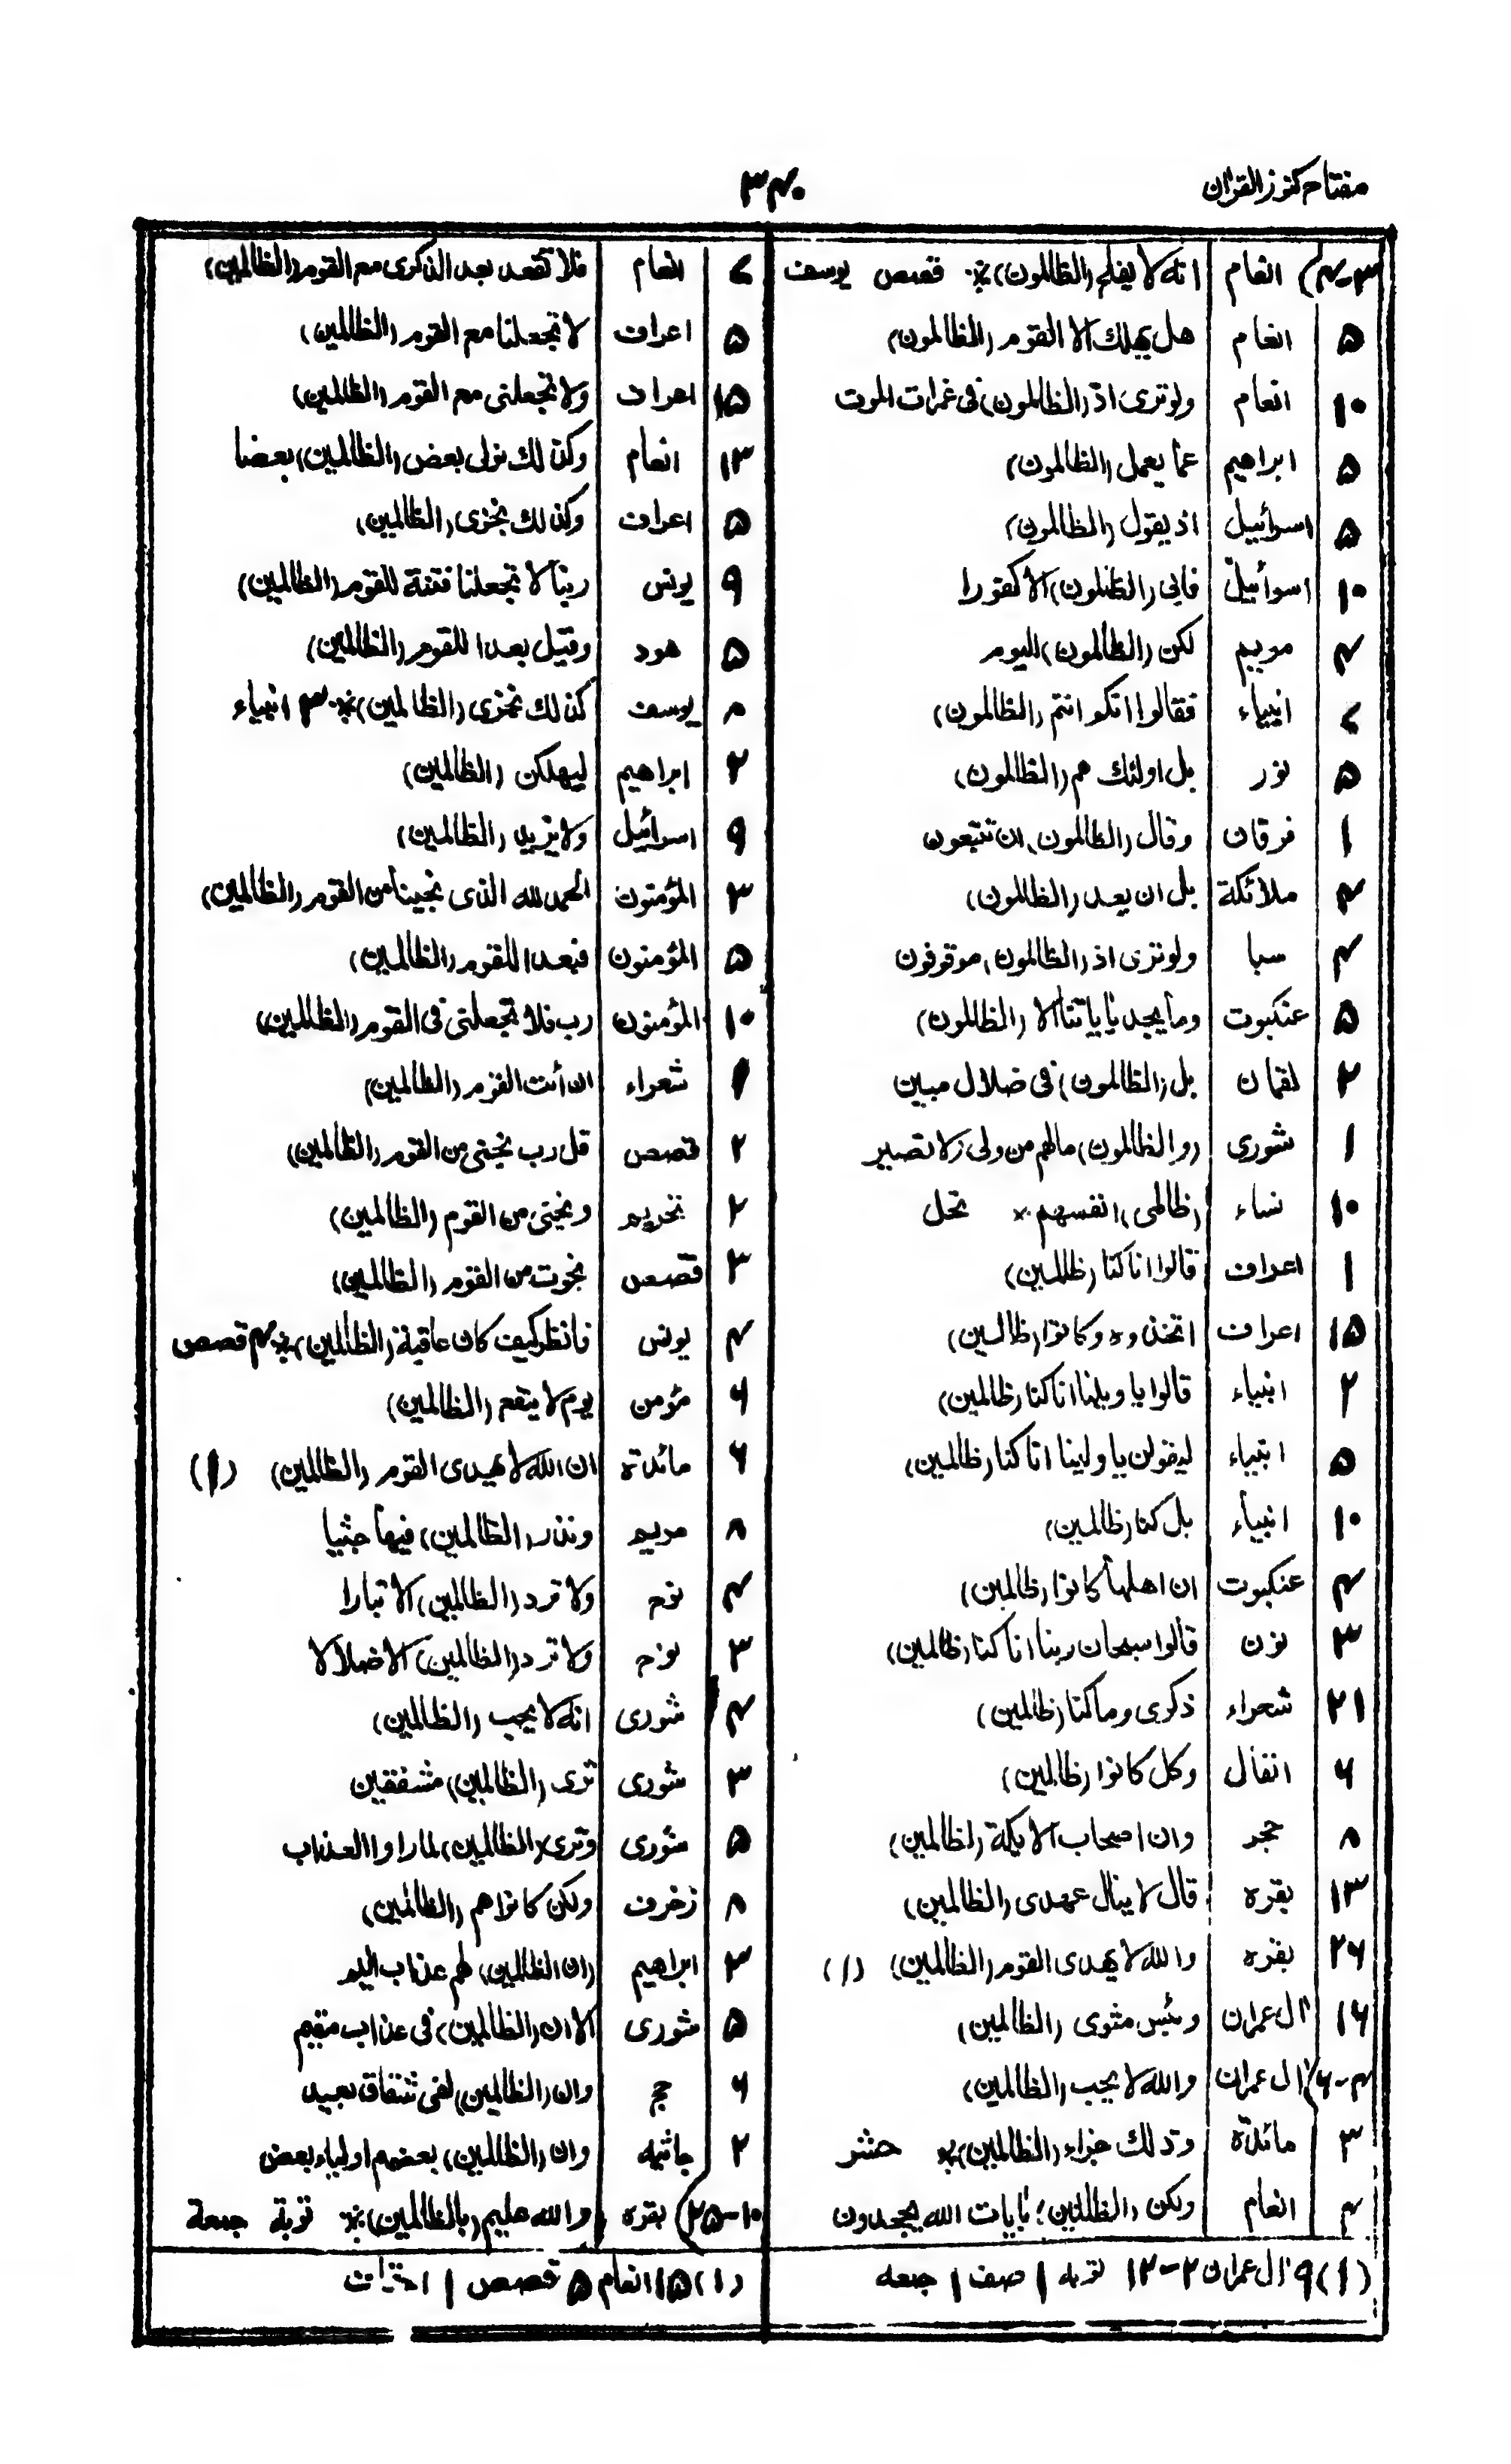 مفتاح كنوز القرآن
٣٤٠
٣-٤) انعام انه لا يفلح (الظالمون)؞ قصص يوسف
٥ انعام هل يهلك الا القوم (الظالمون)
١٠ انعام ولو ترى اذ (الظالمون) فى غمرات الموت
٥ ابراهيم عما يعمل (الظالمون)
٥ اسرائيل اذ يقول (الظالمون)
١٠ اسرائيل فابى (الظالمون) الا كفورا
٤ مريم لكن (الظالمون) اليوم
انبياء فقالوا انكم انتم (الظالمون)
٥ نور بل اولئك هم (الظالمون)
١ فرقان وقال (الظالمون) ان تتبعون
٤ ملائكة بل ان يعد (الظالمون)
٤ سبا ولو ترى اذ (الظالمون) موقوفون
٥ عنكبوت وما يجحد بآياتنا الا (الظالمون)
٢ لقمان بل (الظالمون) فى ضلال مبين
١ شورى (والظالمون) مالهم من ولى ولا نصير
١٠ نساء (ظالمى) انفسهم؞ نحل
١ اعراف قالوا انا كنا (ظالمين)
١٥ اعراف اتخذوه وكانوا (ظالمين)
٢ انبياء قالوا يا ويلنا انا كنا (ظالمين)
٥ انبياء ليقولن يا ويلنا انا كنا (ظالمين)
١٠ انبياء بل كنا (ظالمين)
٤ عنكبوت ان اهلها كانوا (ظالمين)
٣ نون قالوا سبحان ربنا انا كنا (ظالمين)
٢١ شعراء ذكرى وما كنا (ظالمين)
٦ انفال وكل كانوا (ظالمين)
٨ حجر وان اصحاب الايكة (لظالمين)
١٣ بقره قال لا ينال عهدى (الظالمين)
٢٦ بقره والله لا يهدى القوم (الظالمين) (١)
١٦ آل عمران وبئس مثوى (الظالمين)
٤-٦) آل عمران والله لا يحب (الظالمين)
٣ مائدة وذلك جزاء (الظالمين)؞ حشر
٤ انعام ولكن (الظالمين) بآيات الله يجحدون
(١) ٩ آل عمران ٢-١٢ توبه ١ صف ١ جمعه
انعام فلا تقعد بعد الذكرى مع القوم (الظالمين)
٥ اعراف لا تجعلنا مع القوم (الظالمين)
١٥ اعراف ولا تجعلنى مع القوم (الظالمين)
١٣ انعام وكذلك نولى بعض (الظالمين) بعضا
٥ اعراف وكذلك نجزى (الظالمين)
٩ يونس ربنا لا تجعلنا فتنة للقوم (الظالمين)
٥ هود وقيل بعدا للقوم (الظالمين)
٨ يوسف كذلك نجزى (الظالمين)؞ ٣ انبياء
٢ ابراهيم ليهلكن (الظالمين)
٩ اسرائيل ولا يزيد (الظالمين)
٣ المؤمنون الحمد لله الذى نجينا من القوم (الظالمين)
٥ المؤمنون فبعدا للقوم (الظالمين)
١٠ المؤمنون رب فلا تجعلنى فى القوم (الظالمين)
١ شعراء ان أئت القوم (الظالمين)
٢ قصص قل رب نجنى من القوم (الظالمين)
٢ تحريم ونجنى من القوم (الظالمين)
٣ قصص نجوت من القوم (الظالمين)
٤ يونس فانظر كيف كان عاقبة (الظالمين)؞ ٤ قصص
٦ مؤمن يوم لا ينفع (الظالمين)
٦ مائدة ان الله لا يهدى القوم (الظالمين) (١)
٨ مريم ونذر (الظالمين) فيها جثيا
٤ نوح ولا تزد (الظالمين) الا تبارا
٣ نوح ولا تزد (الظالمين) الا ضلالا
٤ شورى انه لا يحب (الظالمين)
٣ شورى ترى (الظالمين) مشفقين
٥ شورى وترى (الظالمين) لما راوا العذاب
٨ زخرف ولكن كانوا هم (الظالمين)
٣ ابراهيم (ان الظالمين) لهم عذاب اليم
٥ شورى الا ان (الظالمين) فى عذاب مقيم
٦ حج وان (الظالمين) لفى شقاق بعيد
٢ جاثيه وان (الظالمين) بعضهم اولياء بعض
١٠-٢٥) بقره والله عليم (بالظالمين)؞ توبة جمعة
(١) ١٥ انعام ٥ قصص ١ احقاف